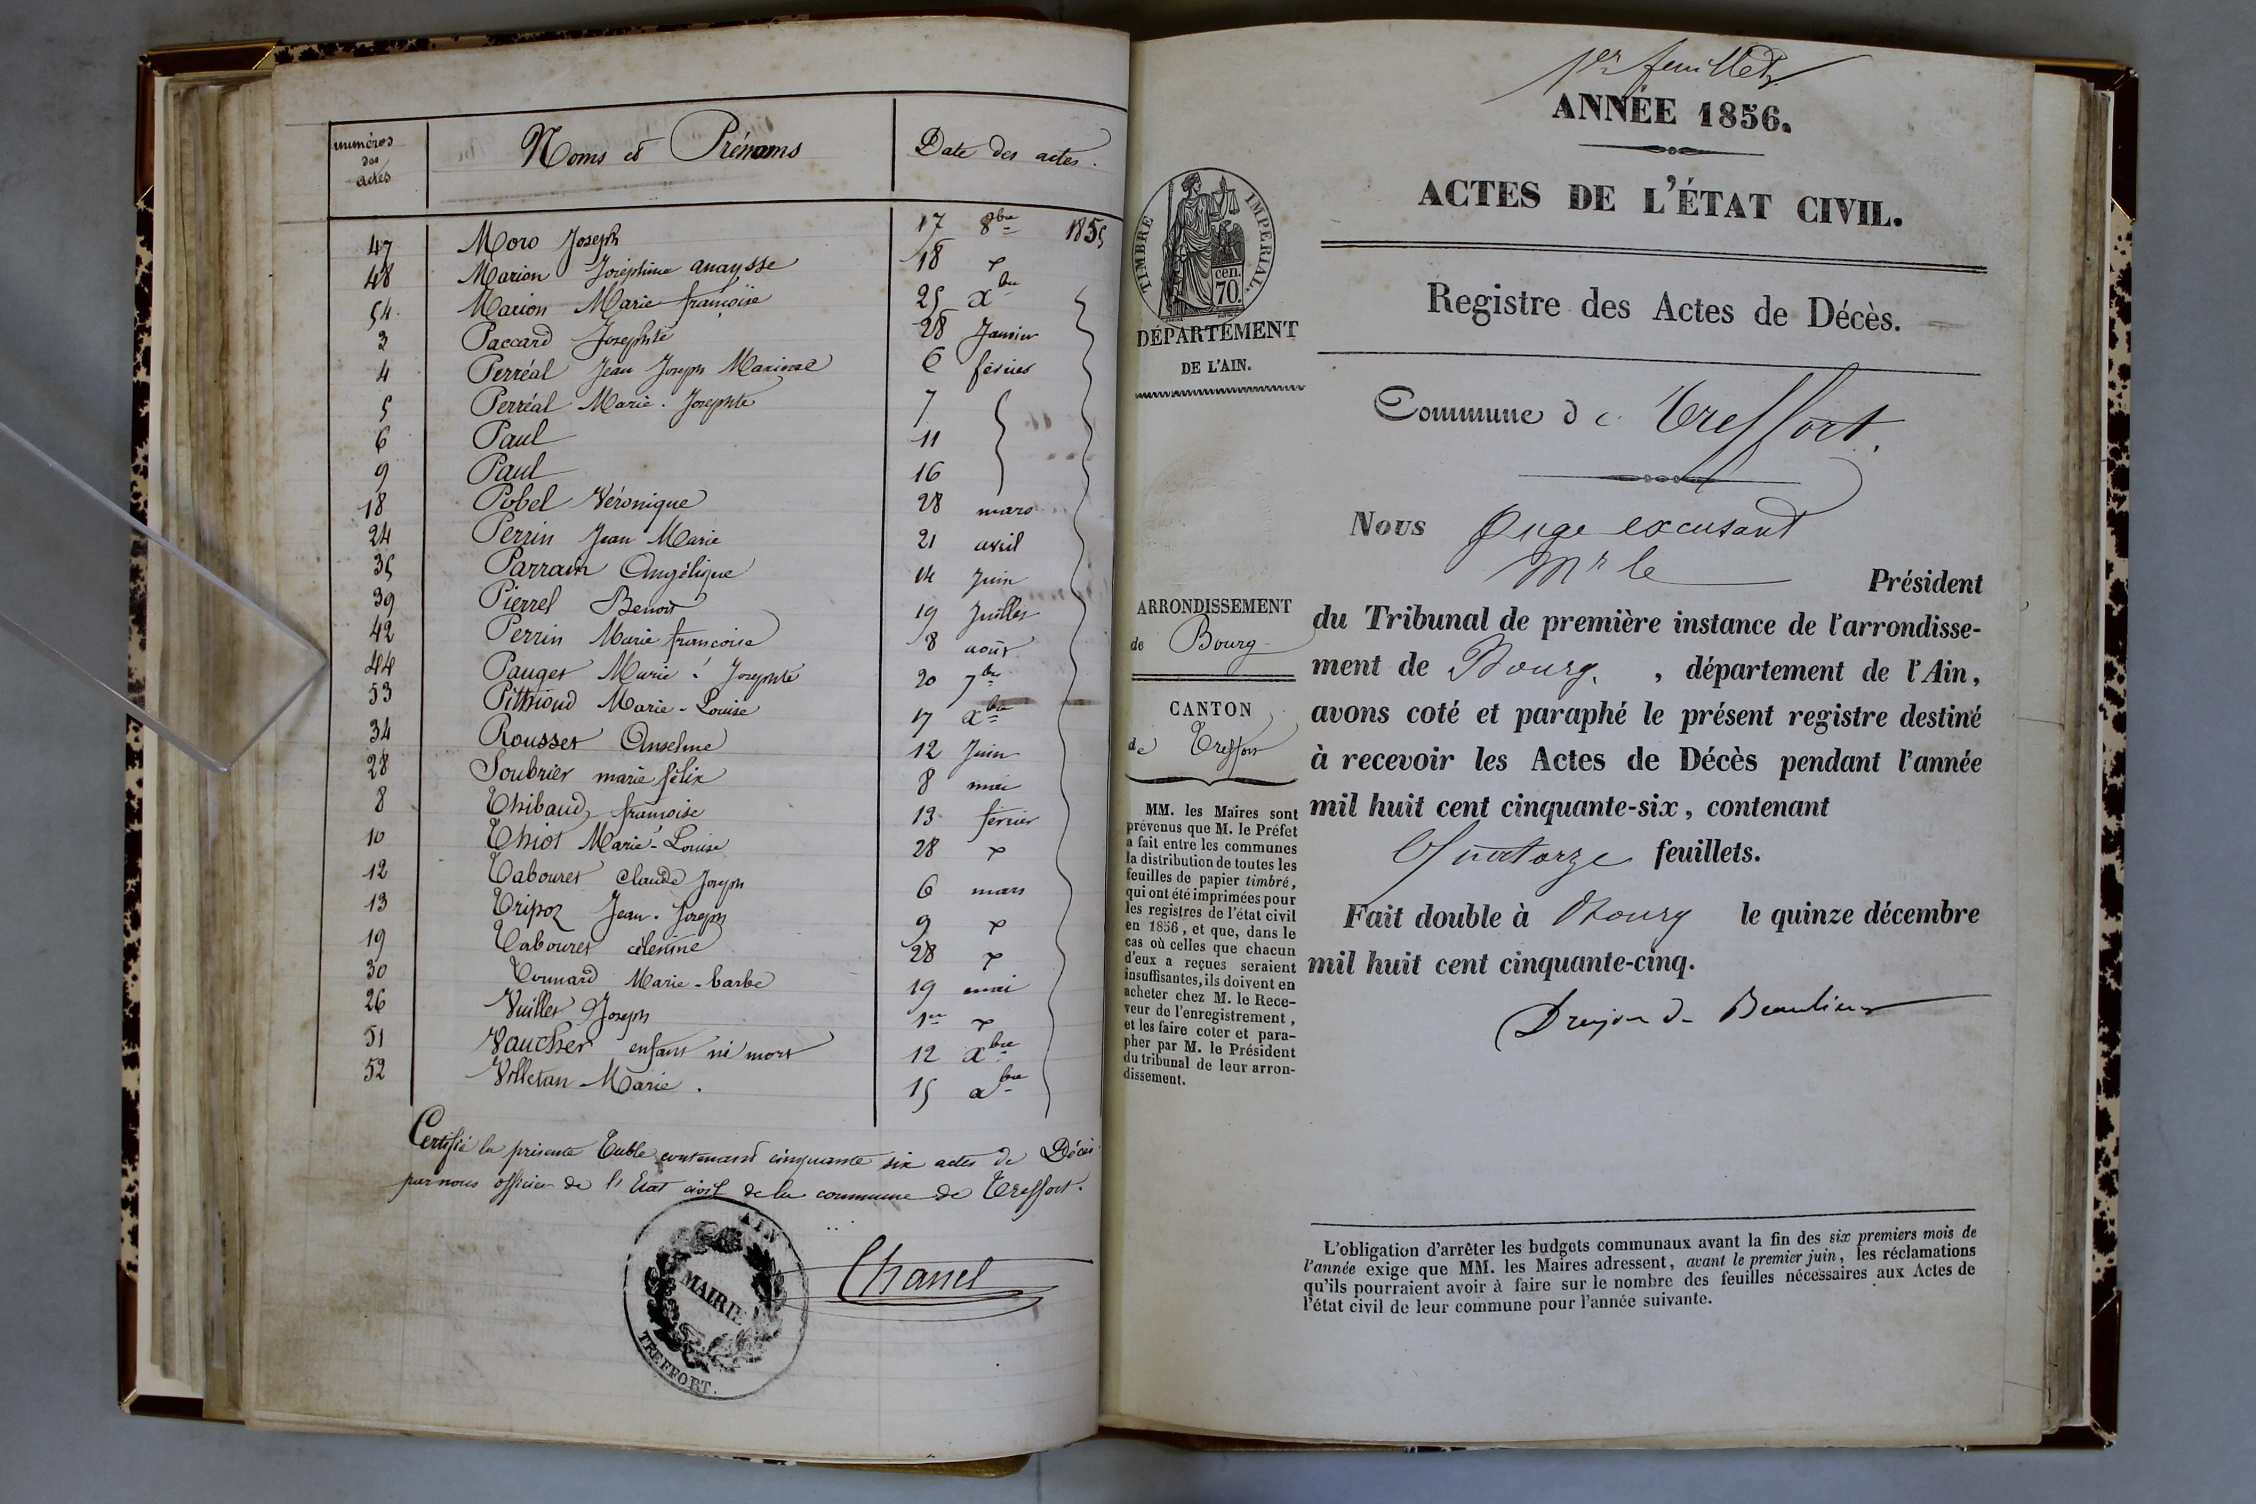 numéros des actes | Noms et Prénoms | Date des actes.
47 Moro Joseph 17 8bre 1855
48 Marion Joséphine anaysse 18
54 Marion Marie françoise 25 Xbre
3 Paccard Josephte 28 Janvier
4 Perréal Jean Joseph 6 février
5 Perréal Marie-Josephte 7
6 Paul 11
9 Paul 16
18 Pobel Véronique 28 mars
24 Perrin Jean Marie 21 avril
35 Parraun Angélique 14 Juin
39 Pierrel Benoit 19 Juillet
42 Perrin Marie françoise 8 août
44 Pauget Marie-Josephte 20 7bre
53 Pithioud Marie-Louise 17 Xbre
34 Rousset Anselme 12 Juin
28 Soubrier marie félix 8 mai
8 Thibaud françoise 13 février
10 Thiot Marie-Louise 28
12 Tabouret Claude Joseph 6 mars
13 Tripoz Jean-Joseph 9
19 Tabouret célenine 28
30 Marie-barbe 19 mai
26 Vuillet Joseph 1er
51 Vaucher enfant né mort 12 Xbre
52 Villetan Marie. 15 Xbre
Certifié la présente Table contenant cinquante six actes de Décès
par nous officier de l'Etat civil de la commune de Treffort.
Chanel
AIN
MAIRIE
TREFFORT.
1er feuillet
ANNÉE 1856.
ACTES DE L'ÉTAT CIVIL.
Registre des Actes de Décès.
Commune de Treffort.
Nous Juge excusant
Mr le Président
du Tribunal de première instance de l'arrondisse-
ment de Bourg, département de l'Ain,
avons coté et paraphé le présent registre destiné
à recevoir les Actes de Décès pendant l'année
mil huit cent cinquante-six, contenant
Quatorze feuillets.
Fait double à Bourg le quinze décembre
mil huit cent cinquante-cinq.
Dreujon de Beaulieu
TIMBRE IMPERIAL.
cen.
70.
DÉPARTEMENT
DE L'AIN.
ARRONDISSEMENT
de Bourg
CANTON
de Treffort
MM. les Maires sont
prévenus que M. le Préfet
a fait entre les communes
la distribution de toutes les
feuilles de papier timbré,
qui ont été imprimées pour
les registres de l'état civil
en 1856, et que, dans le
cas où celles que chacun
d'eux a reçues seraient
insuffisantes, ils doivent en
acheter chez M. le Rece-
veur de l'enregistrement,
et les faire coter et para-
pher par M. le Président
du tribunal de leur arron-
dissement.
L'obligation d'arrêter les budgets communaux avant la fin des six premiers mois de
l'année exige que MM. les Maires adressent, avant le premier juin, les réclamations
qu'ils pourraient avoir à faire sur le nombre des feuilles nécessaires aux Actes de
l'état civil de leur commune pour l'année suivante.